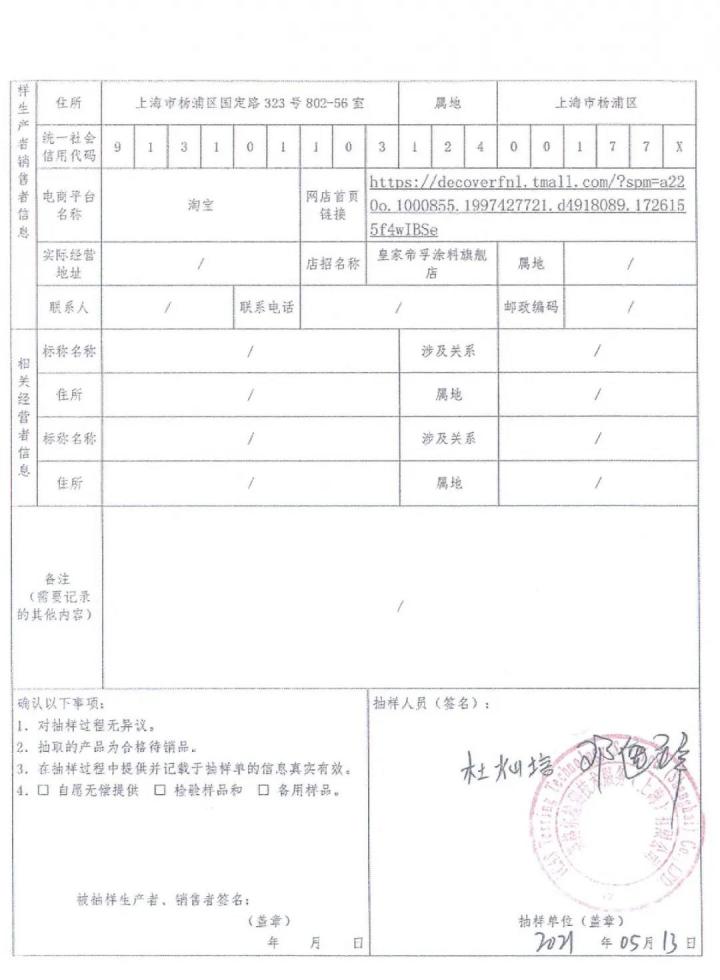 样生产者销售者信息
住所 上海市杨浦区国定路 323 号 802-56 室 属地 上海市杨浦区
统一社会信用代码 9 1 3 1 0 1 1 0 3 1 2 4 0 0 1 7 7 X
电商平台名称 淘宝 网店首页链接 https://decoverfnl.tmall.com/?spm=a22
0o.1000855.1997427721.d4918089.172615
5f4wIBSe
实际经营地址 / 店招名称 皇家帝孚涂料旗舰店 属地 /
联系人 / 联系电话 / 邮政编码 /
相关经营者信息
标称名称 / 涉及关系 /
住所 / 属地 /
标称名称 / 涉及关系 /
住所 / 属地 /
备注
(需要记录
的其他内容)
/
确认以下事项:
1. 对抽样过程无异议。
2. 抽取的产品为合格待销品。
3. 在抽样过程中提供并记载于抽样单的信息真实有效。
4. □ 自愿无偿提供 □ 检验样品和 □ 备用样品。
被抽样生产者、销售者签名:
(盖章)
年 月 日
抽样人员(签名):
抽样单位(盖章)
2021 年 05 月 13 日